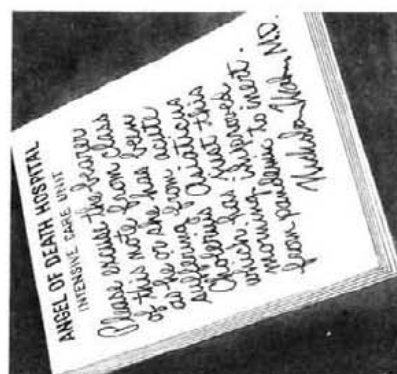 ANGEL OF DEATH HOSPITAL
INTENSIVE CARE UNIT
Please excuse the bearer
of this note from class
as he or she has been
suffering from acute
Cholerus Asiaticus
which has just this
morning improved
from pandemic to inert.
M.D.